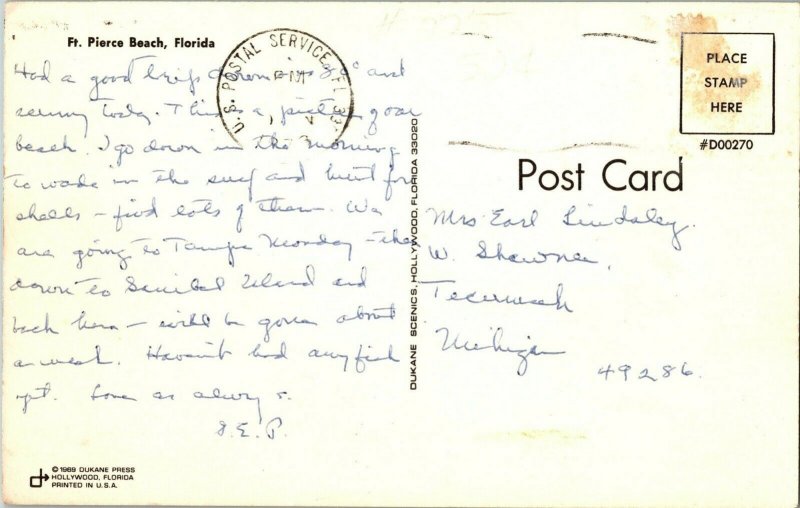 Ft. Pierce Beach, Florida
Had a good trip down is 80° and
sunny today. This is a picture of our
beach. I go down in the morning
to wade in the surf and hunt for
shells - find lots of them. We
are going to Tampa Monday - then
down to Sanibel Island and
back here - will be gone about
a week. Haven't had any fish
yet. Love as always.
S.E.P.
© 1969 DUKANE PRESS
HOLLYWOOD, FLORIDA
PRINTED IN U.S.A.
U.S. POSTAL SERVICE, FL 33
PM
DUKANE SCENICS, HOLLYWOOD, FLORIDA 33020
PLACE
STAMP
HERE
#D00270
Post Card
Mrs Earl Lindsley.
W. Shawnee,
Tecumseh
Michigan
49286.